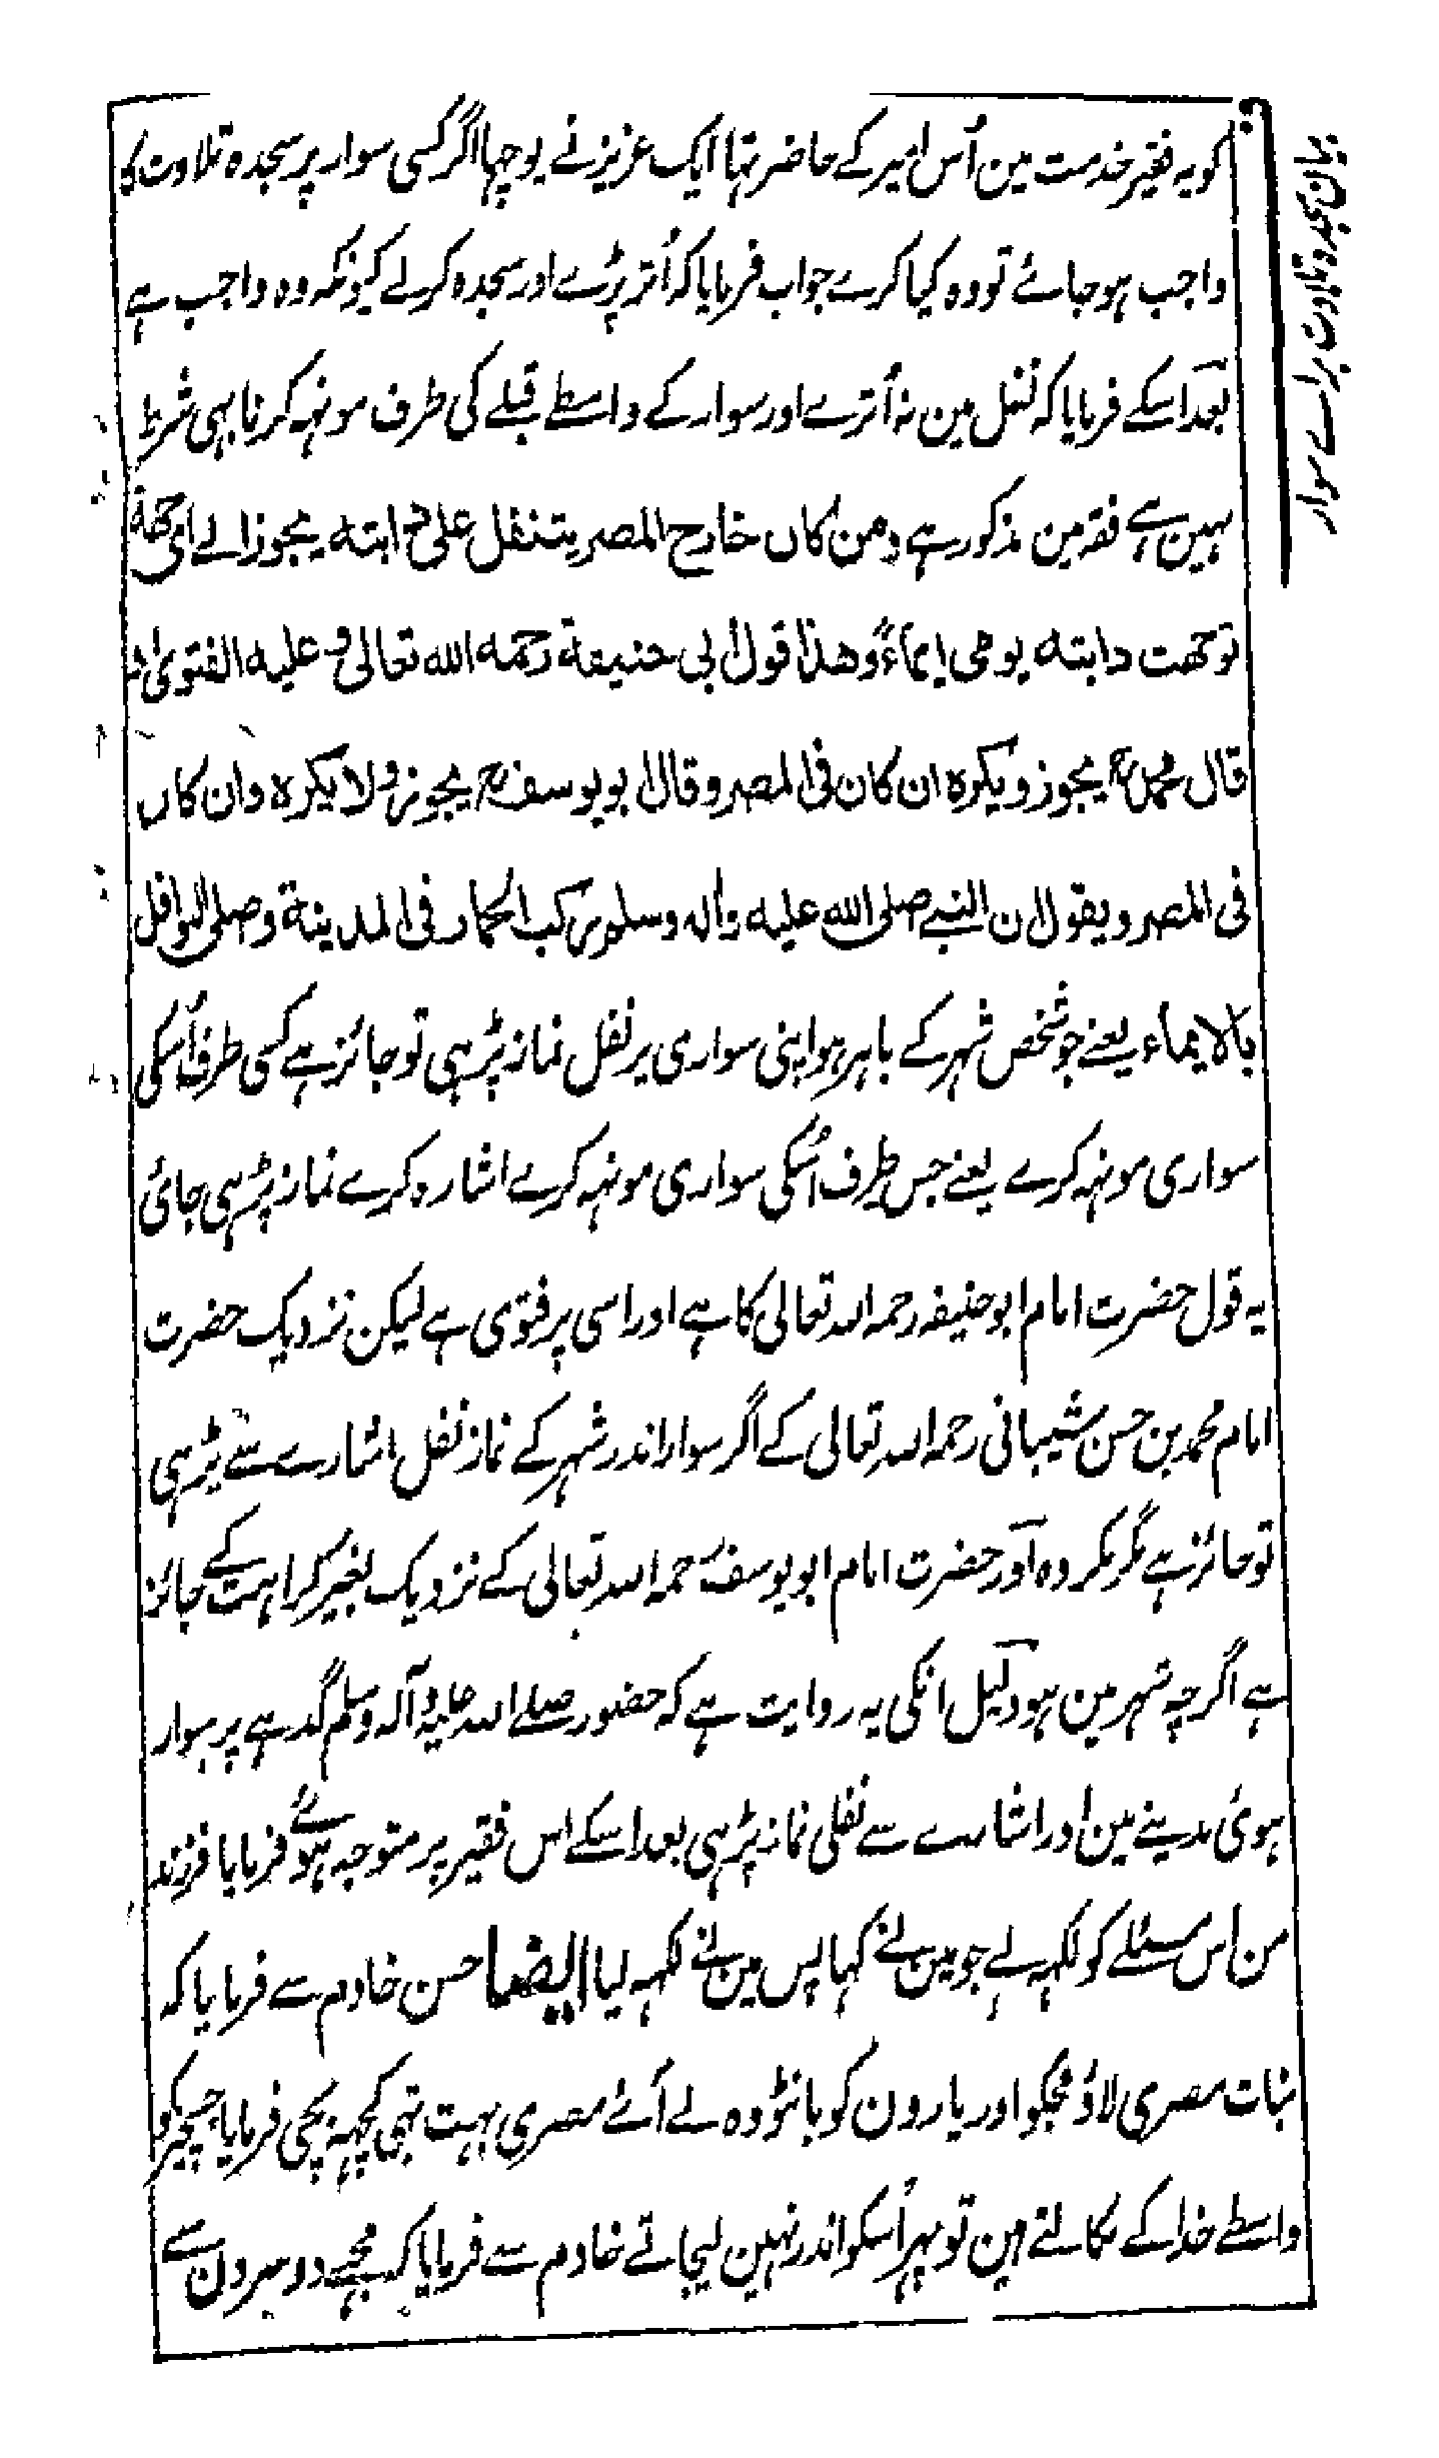 کو یہ فقیر خدمت مین اُس امیر کے حاضر تہا ایک عزیز نے پوچہا اگر کسی سوار پر سجدہ تلاوت کا
واجب ہو جائے تو وہ کیا کرے جواب فرمایا کہ اُتر پڑے اور سجدہ کرلے کیونکہ وہ واجب ہے
بعد اسکے فرمایا کہ نفل مین نہ اُترے اور سوار کے واسطے قبلے کی طرف مونہہ کرنا بہی شرط
نہین ہے فقہ مین مذکور ہے ومن کان خارج المصر یتنفل علی دابته یجوز الے ای جهة
توجهت دابته یومی ایماءً وهذا قول ابی حنیفة رحمه الله تعالی وعلیه الفتویٰ و
قال محمد رح یجوز ویکره ان کان فی المصر وقال ابو یوسف رح یجوز ولا یکره وان کان
فی المصر ویقول ان النبے صلی الله علیه وآله وسلم رکب الحمار فی المدینة وصلی النوافل
بالایماء یعنے جو شخص شہر کے باہر ہو اپنی سواری پر نفل نماز پڑہی تو جائز ہے کسی طرف اُسکی
سواری مونہہ کرے یعنے جس طرف اُسکی سواری مونہہ کرے اشارہ کرے نماز پڑہی جائی
یہ قول حضرت امام ابو حنیفہ رحمہ اللہ تعالی کا ہے اور اسی پر فتوی ہے لیکن نزدیک حضرت
امام محمد بن حسن شیبانی رحمہ اللہ تعالی کے اگر سوار اندر شہر کے نماز نفل اشارے سے پڑہی
تو جائز ہے مگر مکروہ اور حضرت امام ابو یوسف رحمہ اللہ تعالی کے نزدیک بغیر کراہت کے جائز
ہے اگرچہ شہر مین ہو دلیل انکی یہ روایت ہے کہ حضور صلے اللہ علیہ وآلہ وسلم گدہے پر سوار
ہوئی مدینے مین اور اشارے سے نفلی نماز پڑہی بعد اسکے اس فقیر پر متوجہ ہوئے فرمایا فرزند
من اس مسئلے کو لکہہ لے جو مین نے کہا پس مین نے لکہہ لیا ایضا حسن خادم سے فرمایا کہ
نبات مصری لاؤ مجکو اور یارون کو بانٹو وہ لے آئے مصری بہت تہی کچہہ بچی فرمایا جس چیز کو
واسطے خدا کے نکالتے ہین تو پہر اُسکو اندر نہین لیجاتے خادم سے فرمایا کہ مجہے دوسرون سے
بیان سجدہ تلاوت براے سوار